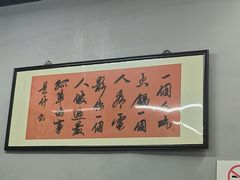 一個人吃
火鍋一個
人看電
影你一個
人做過最
孤單的事
是什么